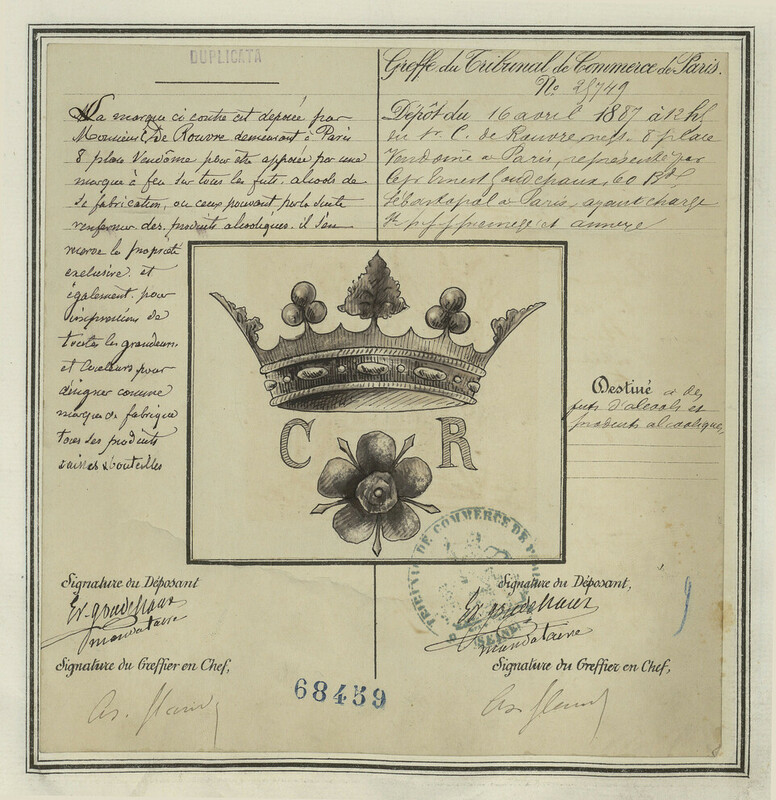 DUPLICATA
La marque ci contre est déposée par
Monsieur C. de Rouvre demeurant à Paris
8 place Vendôme pour être apposée par une
marque à feu sur tous les futs, alcools de
sa fabrication, ou ceux pouvant par la suite
renfermer des produits alcooliques. il s'en
réserve la propriété
exclusive. et
également pour
impressions de
toutes les grandeurs
et couleurs pour
désigner comme
marque de fabrique
tous ses produits
caisses & bouteilles
Greffe du Tribunal de Commerce de Paris.
No 25749
Dépôt du 16 avril 1887 à 12 h
du Sr. C. de Rouvre 8 place
Vendôme à Paris, représenté par
Ernest Goudchaux, 60 Bd
Sébastopol à Paris, ayant charge
et annexé
C R
Destiné à des
futs d'alcools et
produits alcooliques,
TRIBUNAL DE COMMERCE DE
SEINE
Signature du Déposant
Er. Goudchaux
mandataire
Signature du Greffier en Chef,
Signature du Déposant,
Er. Goudchaux
mandataire
Signature du Greffier en Chef,
68459